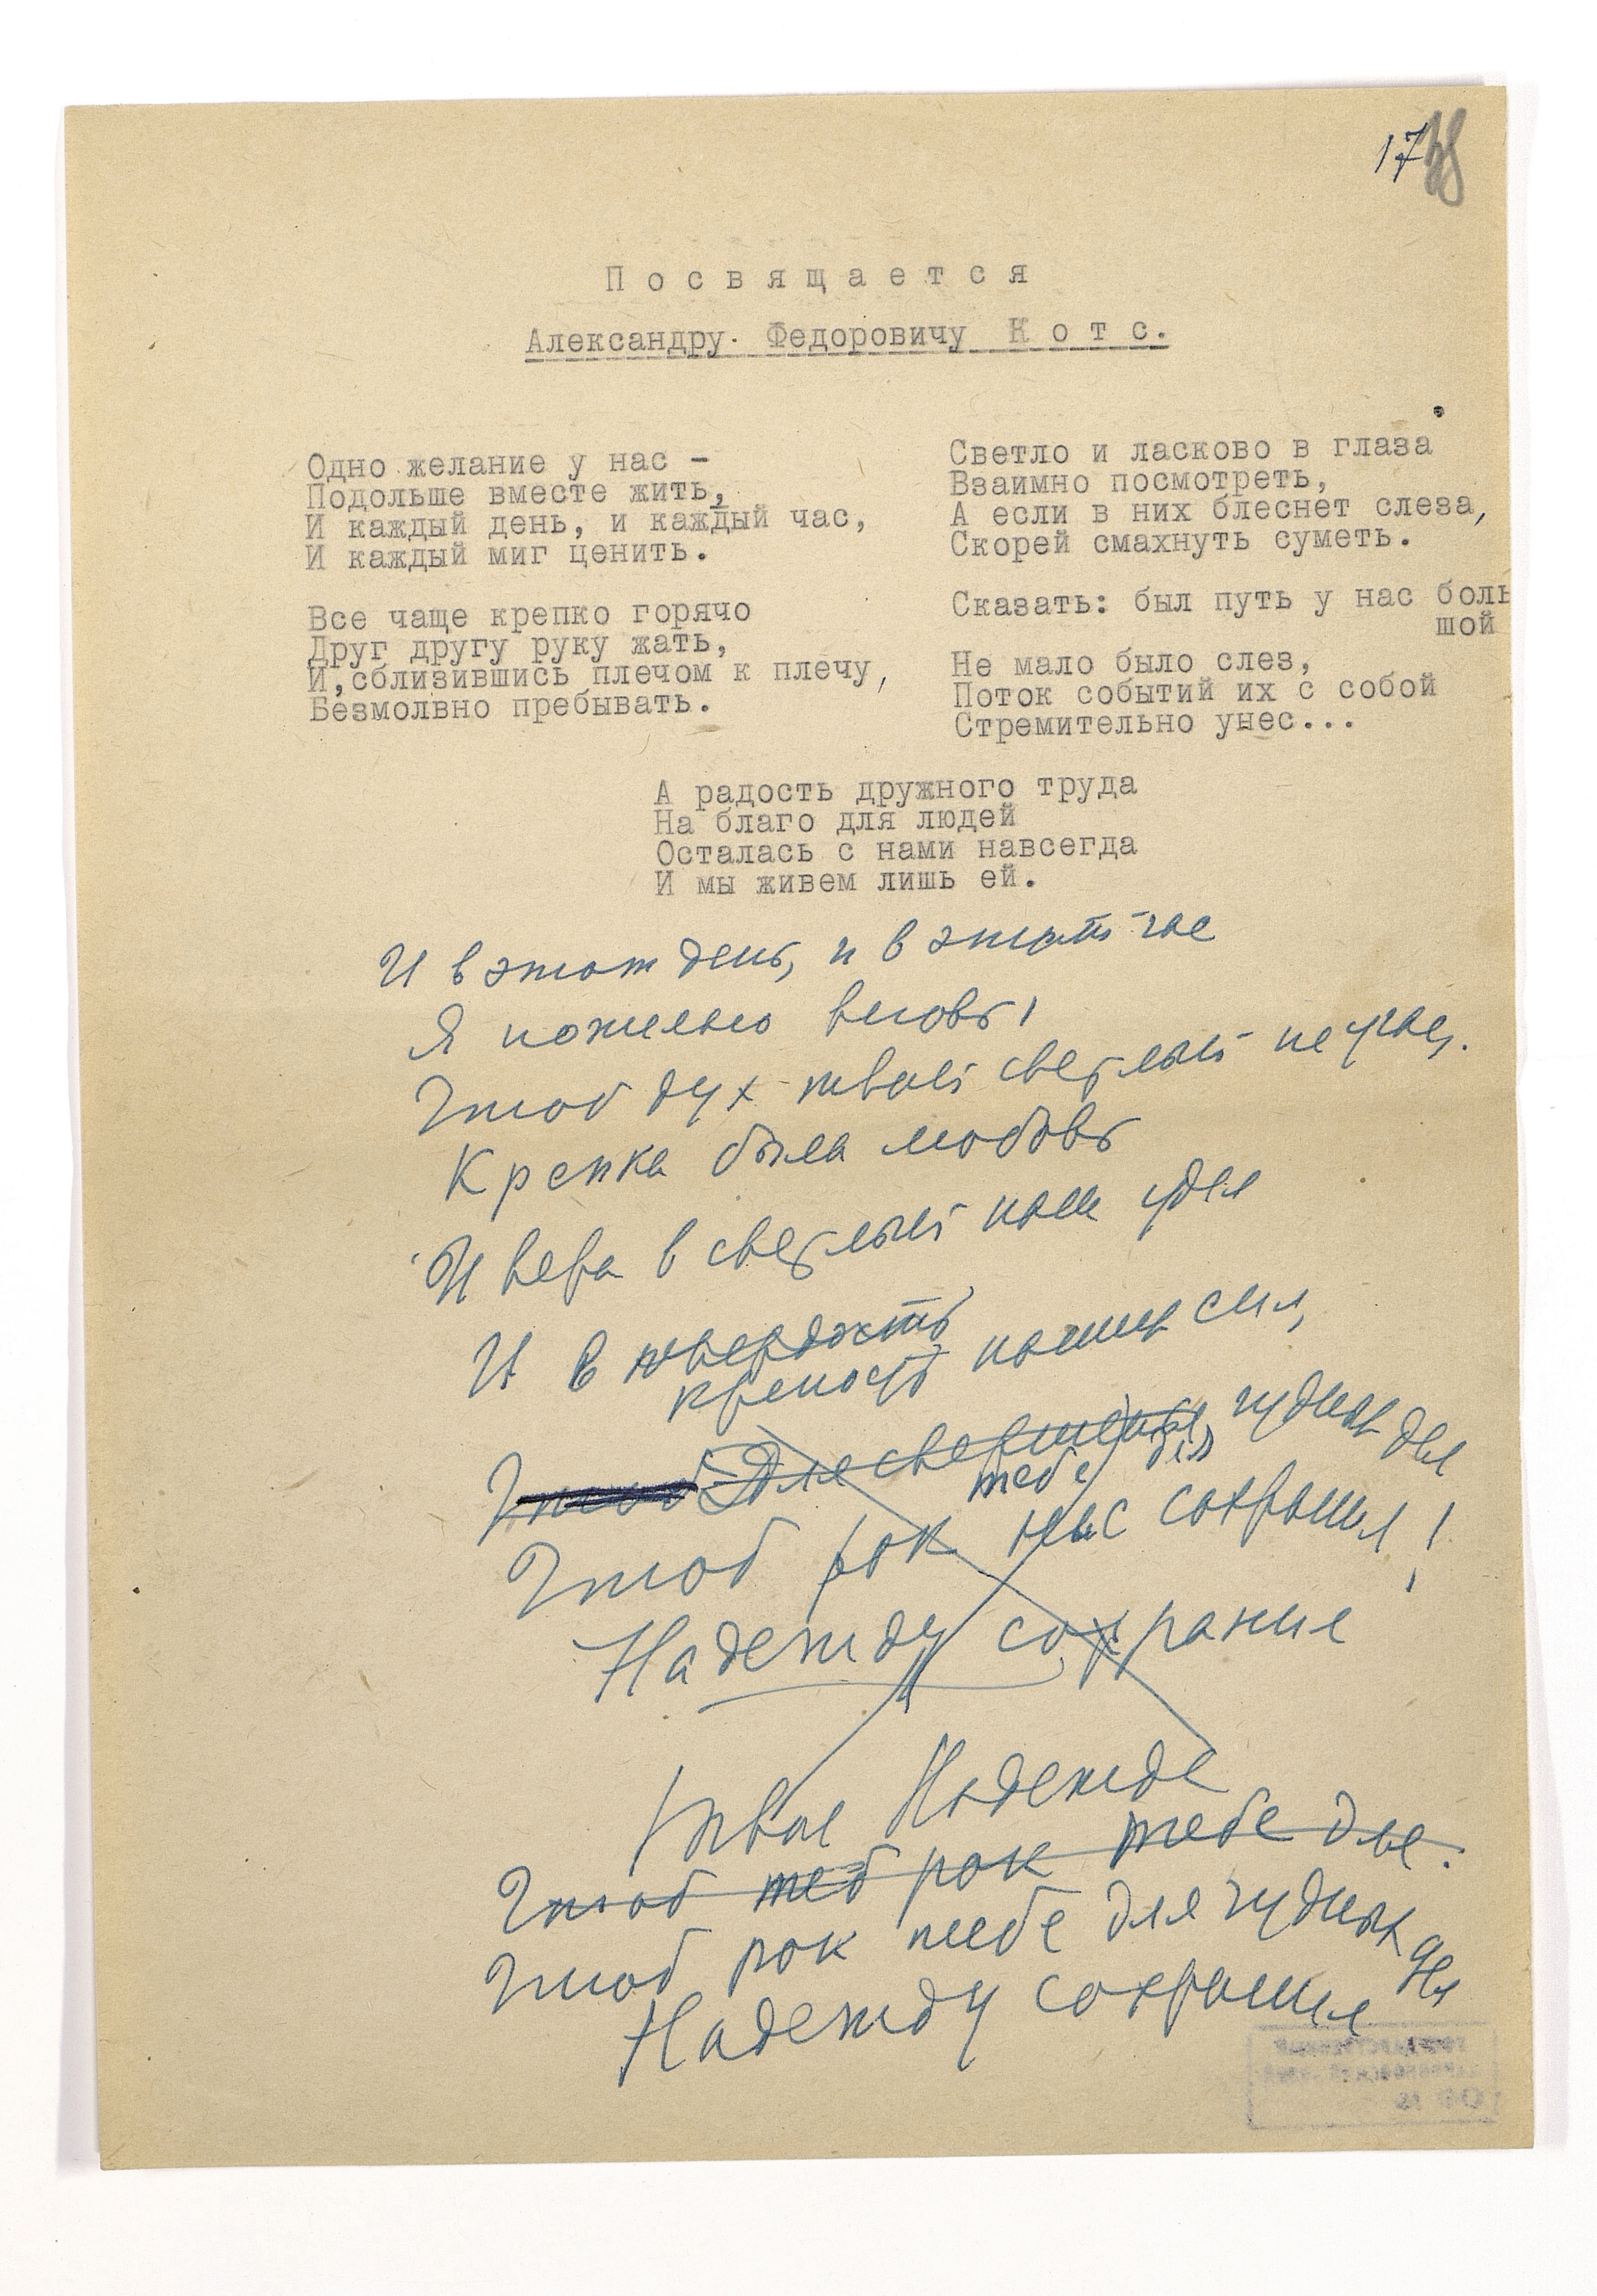 17
Посвящается
Александру Федоровичу Котс.
Одно желание у нас -
Подольше вместе жить,
И каждый день, и каждый час,
И каждый миг ценить.
Все чаще крепко горячо
Друг другу руку жать,
И,сблизившись плечом к плечу,
Безмолвно пребывать.
Светло и ласково в глаза
Взаимно посмотреть,
А если в них блеснет слеза,
Скорей смахнуть суметь.
Сказать: был путь у нас боль
шой
Не мало было слез,
Поток событий их с собой
Стремительно унес...
А радость дружного труда
На благо для людей
Осталась с нами навсегда
И мы живем лишь ей.
И в этот день, и в этот час
Я пожелаю вновь,
Чтоб дух твой светлый не угас,
Крепка была любовь
И вера в светлый наш удел
И в твердость
крепость наших сил,
Чтоб Для свершенья чудных дел
тебе для
Чтоб рок нас сохранил!
Надежду сохранил
Твоя Надежда
Чтоб теб рок тебе для
Чтоб рок тебе для чудных дел
Надежду сохранил